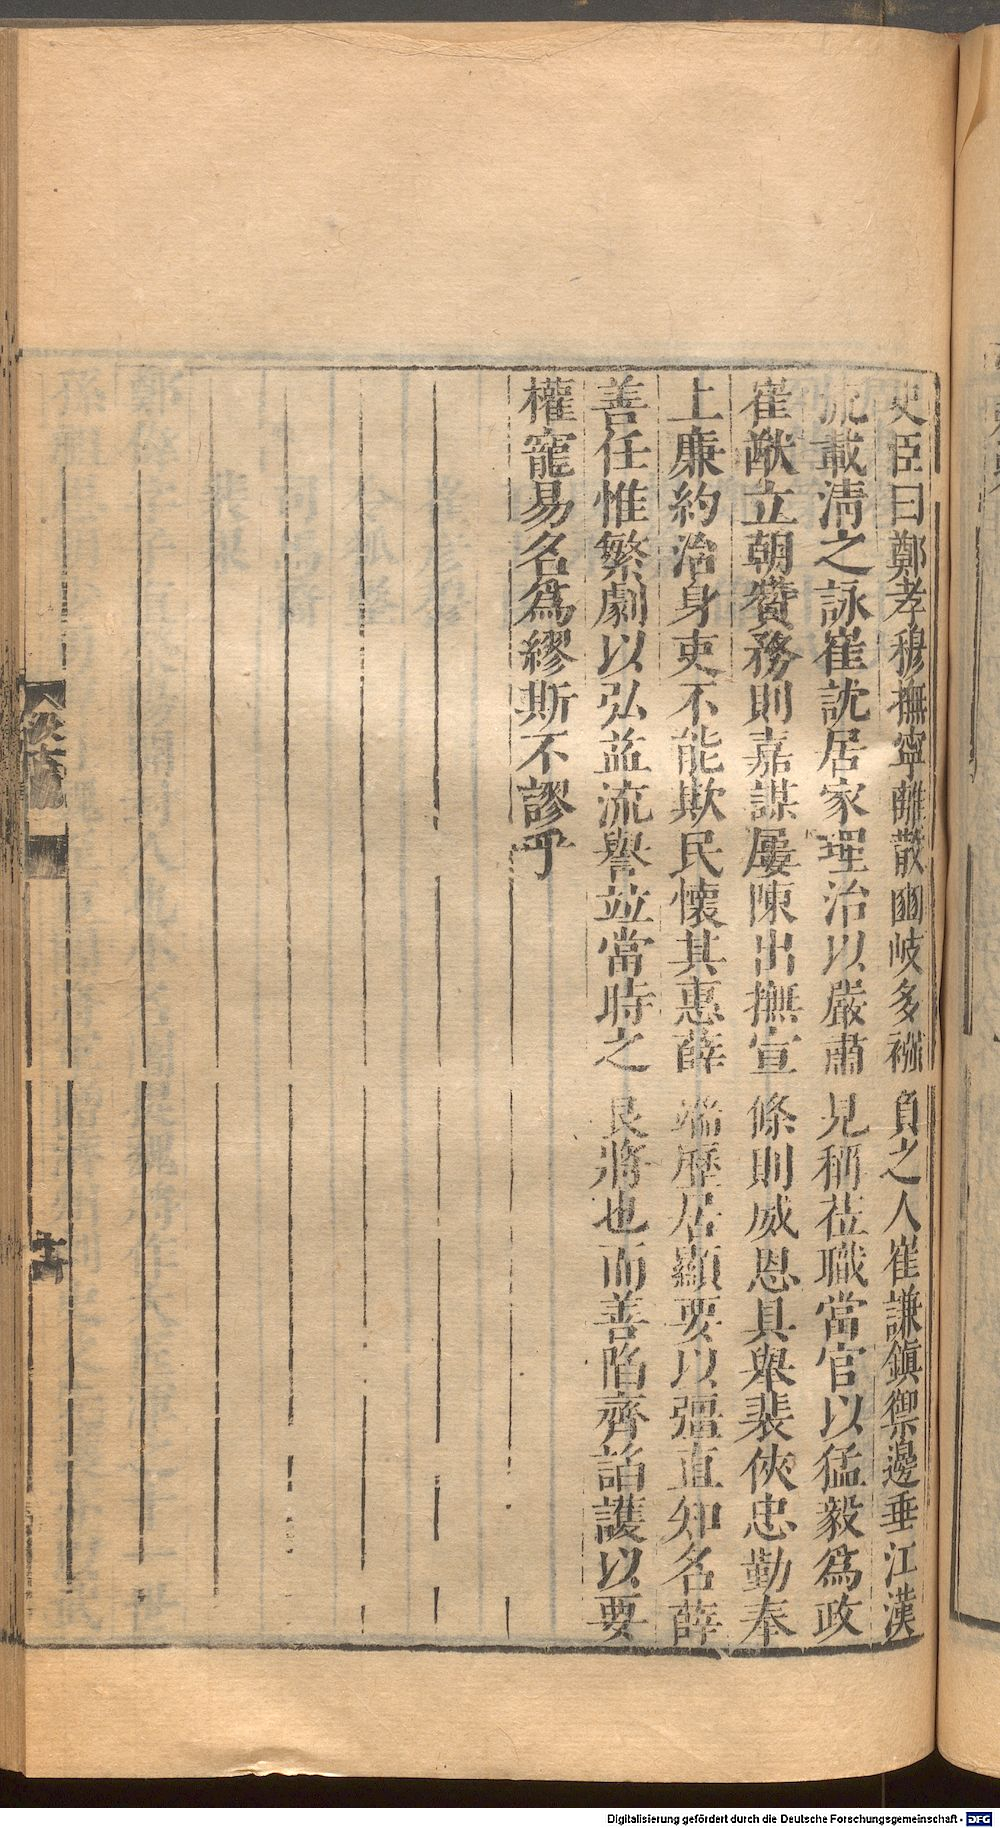 史臣曰鄭孝穆撫寧離散豳岐多襁負之人崔謙鎮禦邊垂江漢
流載清之詠崔訦居家理治以嚴肅見稱莅職當官以猛毅爲政
崔猷立朝贊務則嘉謀屢陳出撫宣條則威恩具舉裴俠忠勤奉
上廉約治身吏不能欺民懷其惠薛端歷居顯要以彊直知名薛
善任惟繁劇以弘益流譽竝當時之良將也而善陷齊詒護以要
權寵易名爲繆斯不謬乎
Digitalisierung gefördert durch die Deutsche Forschungsgemeinschaft - DFG